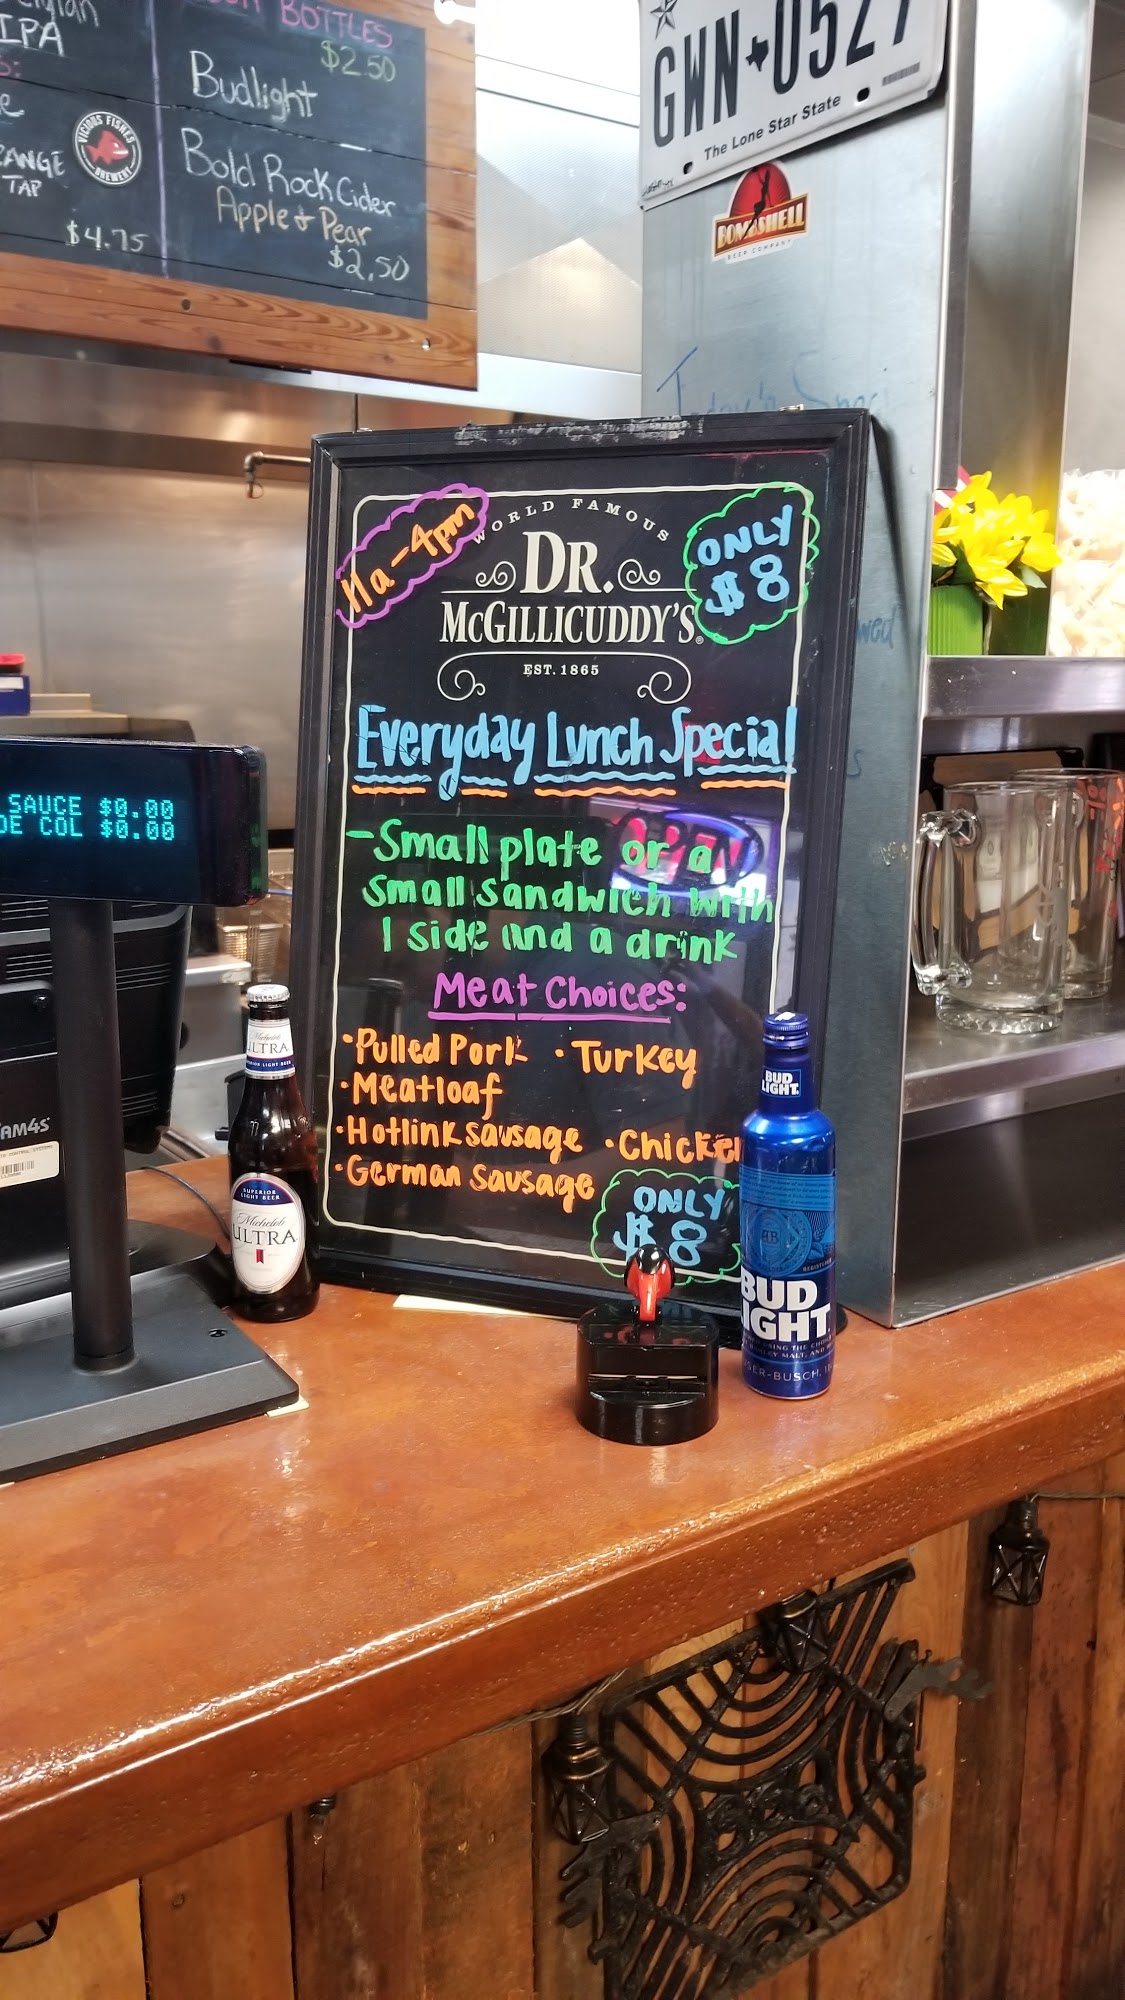 IPA
BOTTLES
$2.50
Budlight
Bold Rock Cider
Apple & Pear
$2.50
ANGE
TAP
$4.75
VICIOUS FISHES
BREWERY
GWN 0527
The Lone Star State
BOMBSHELL
BEER COMPANY
Today's
11a-4pm
WORLD FAMOUS
DR.
McGILLICUDDY'S®
EST. 1865
ONLY
$8
Everyday Lunch Special
-Small plate or a
small sandwich with
1 side and a drink
OPEN
Meat Choices:
•Pulled Pork •Turkey
•Meatloaf
•Hotlink sausage •Chicken
•German Sausage
ONLY
$8
SAUCE $0.00
DE COL $0.00
AM4S
Michelob
ULTRA
SUPERIOR LIGHT BEER
SUPERIOR
LIGHT BEER
Michelob
ULTRA
BUD
LIGHT.
BUD
LIGHT.
SER-BUSCH,